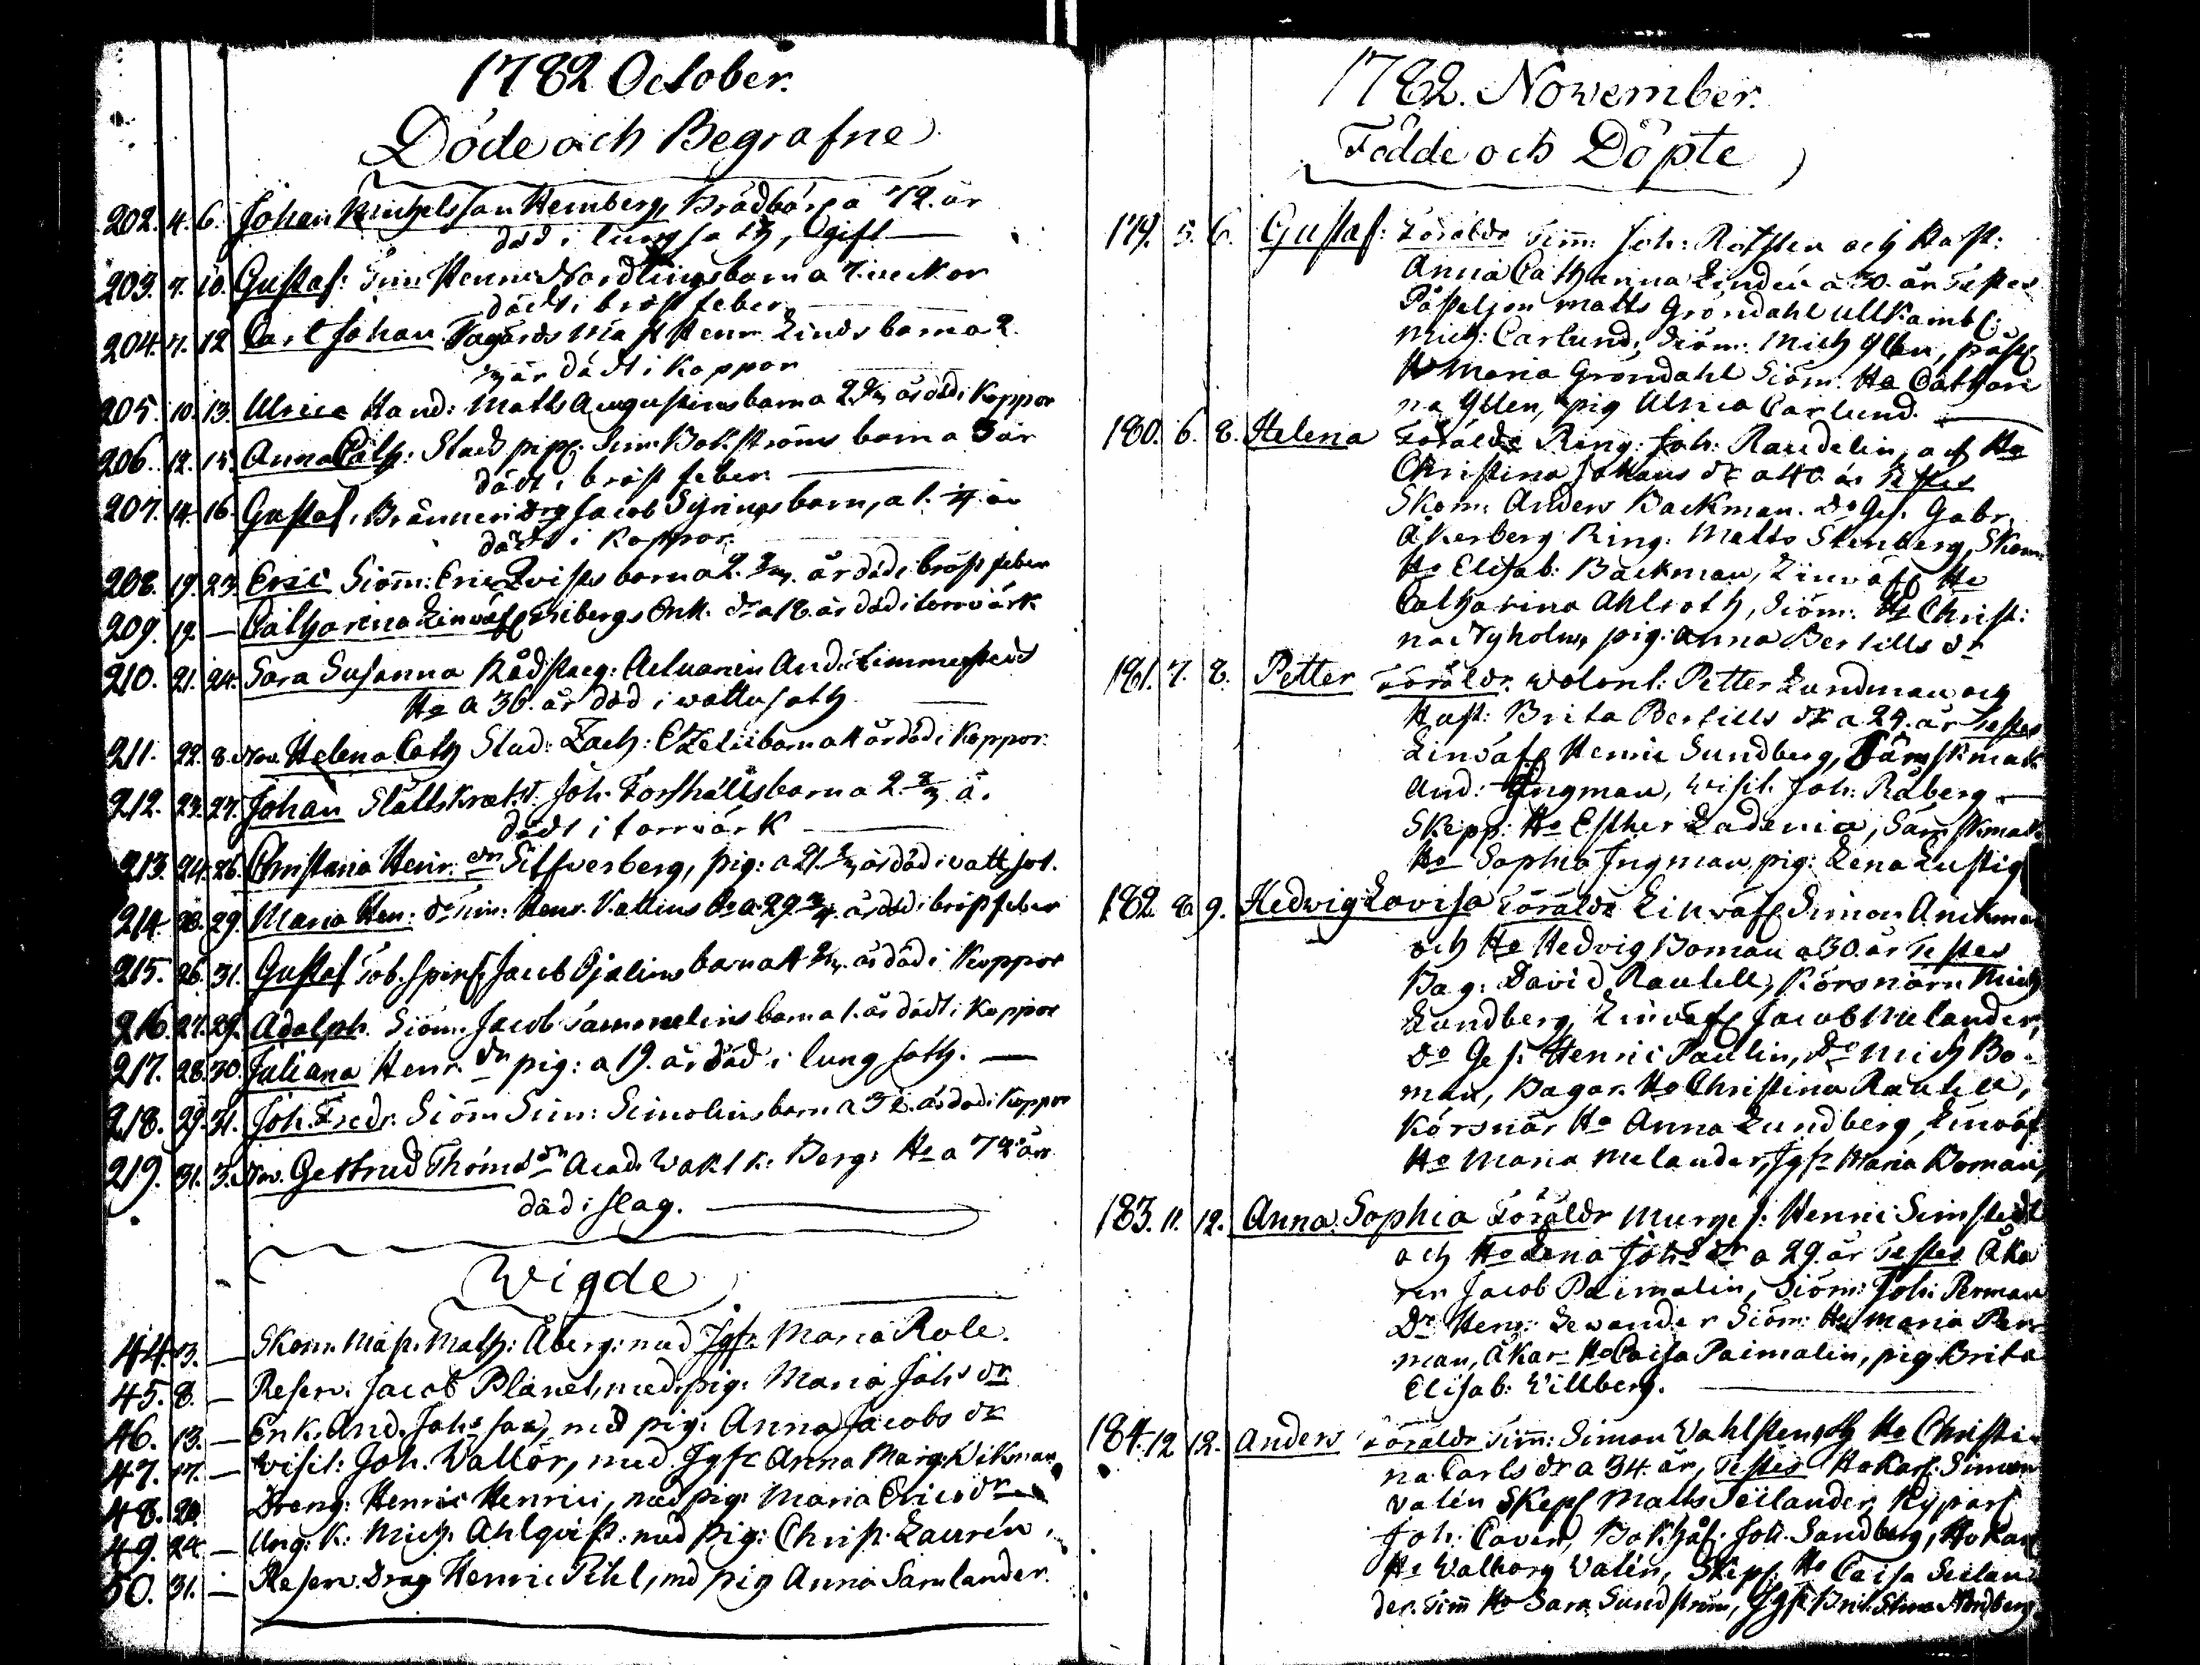 1782 October.
Döde och Begrafne
202. 4. 6. Johan Michelsson Hemberg, Brädbär, a 72. år
död i lungsoth, Ogift
203. 7. 10. Gustaf: Tim: Henr: Nordlings barn a 7. weckor
dödt i bröst feber
204. 7. 12 Carl Johan. Henr Linds barn a 2.
år dödt i koppor
205. 10. 13. Ulrica Hand: Matts Augustins barn a 2 år död i Koppor
206. 12. 15. Anna Cath: Stads Sim: Bokströms barn a 3 år
dödt i bröst feber
207. 14. 16. Gustaf, Bränneri drg Jacob Syrings barn, a 1. ¼ år
dödt i koppor.
208. 19. 23. Eric Siöm: Eric Qvists barn a 2. år död i bröst feber
209. 19. — Catharina Linväf Fribergs Enk. dr a 18. år död i torrvärk
210. 21. 24. Sara Susanna Rådstug: Actuarien And: Timmersteds
Ho a 36. år död i wattusoth
211. 22. 8. Nov. Helena Cath Stud: Zach: barn a 4 år död i Koppor.
212. 23. 27. Johan Slätts Joh. Forshälls barn a 2 å.
dödt i torrvärk
213. 24. 26. Christina Henr. dr Silfverberg, pig: a 21. år död i vattsot.
214. 28. 29. Maria Hen: dr Tim: Henr. Vallins Ho a 29. ¾. år död i bröstfeber
215. 26. 31. Gustaf Tob. spin: Jacob Ojalins barn a 4 år död i Koppor
216. 27. 29. Adolph. Siöm: Jacob Sammelins barn a 1. år dödt i Koppor
217. 28. 30. Juliana Henr. dr pig: a 19. år död i lungsoth. —
218. 29. 31. Joh. Fredr. Siöm Sim: Simolins barn a 3 år död i Koppor
219. 31. 3. Nov. Gertrud Thoms dr Acad. Wakt k: Berg: Ho a 72 år
död i slag.
Wigde
44. 3. — Skom. Mäst. Math: Åberg: med Jgfr. Maria Role.
45. 8. — Reserv. Jacob Planet, med pig: Maria Johs dr
46. 13. — Enk. And. Johs son, med pig: Anna Jacobs dr
47. 17. — Visit: Joh. Vallör, med Jgfr Anna Marg. Wikman
48. 20. Dreng: Henric Henrici, med pig: Maria Erics dr
49. 24. — Ung. K. Mich. Ahlqvist. med pig: Christ. Laurén
50. 31. — Reserv. Drag Henric Pihl, med pig Anna Samlander.
1782. November.
Födde och Döpte
179. 5. 6. Gustaf: Föräldr Tim: Joh: Rotsten och Hust:
Anna Catharina Lindén a 30. år Testes
Påsteljon Matts Gröndahl
Mich: Carlund, Siöm: Mich Ylen,
Ho Maria Gröndahl Siöm: Ho Cathari
na Ylen, pig Ulrica Carlund.
180. 6. 8. Helena Föräldr Ring: Joh: Randelin, och Ho
Christina Johans dr a 40. år Testes
Skom: Anders Backman. Do Ges. Gabr.
Åkerberg Ring: Matts Stenberg, Skom:
Ho Elisab: Backman, Linväf Ho
Catharina Ahlroth, Siöm: Ho Christ:
na Nyholm, pig: Anna Bertills dr
181. 7. 8. Petter Föräldr. Wolont: Petter Lundman och
Hust: Brita Bertills dr a 29. år Testes
Linväf Henric Sundberg, Sämskmak
And: Yngman, Visit. Joh. Råberg —
Skepp: Ho Esther Ladenia, Sämskmak
Ho Sophia Ingman, pig: Lena Lustig
182. 8. 9. Hedvig Lovisa Föräldr Linväf Simon Anckman
och Ho Hedvig Boman a 30. år Testes
Bag: David Rautell, Körsnärn Mich
Lundberg, Linväf Jacob Melander,
Do Ges: Henric Paulin, Do Mich Bo-
man, Bagar. Ho Christina Rautell,
Körsnär Ho Anna Lundberg, Linväf
Ho Maria Melander, Jgfr Maria Boman
183. 11. 12. Anna Sophia Föräldr Murges: Henric Simstedt
och Ho Lena Johs dr a 29. år Testes Åka
ren Jacob Paimalin, Siöm: Joh: Perman
Dr Henr: Lewander Siöm: Ho Maria Per
man, Åkar Ho Caisa Paimalin, pig Brita
Elisab: Willberg.
184. 12 12. Anders Föräldr Tim: Simon Wahlsten och Ho Christi-
na Carls dr a 34. år, Testes Simon
Valén Skepf Matts Seilander,
Joh. Caven, Bokhål. Joh. Sandberg,
Ho Walborg Valén, Skep: Ho Caisa Seilan
der. Tim Ho Sara Sundström, Jgfr Brit. Stina Nordberg.